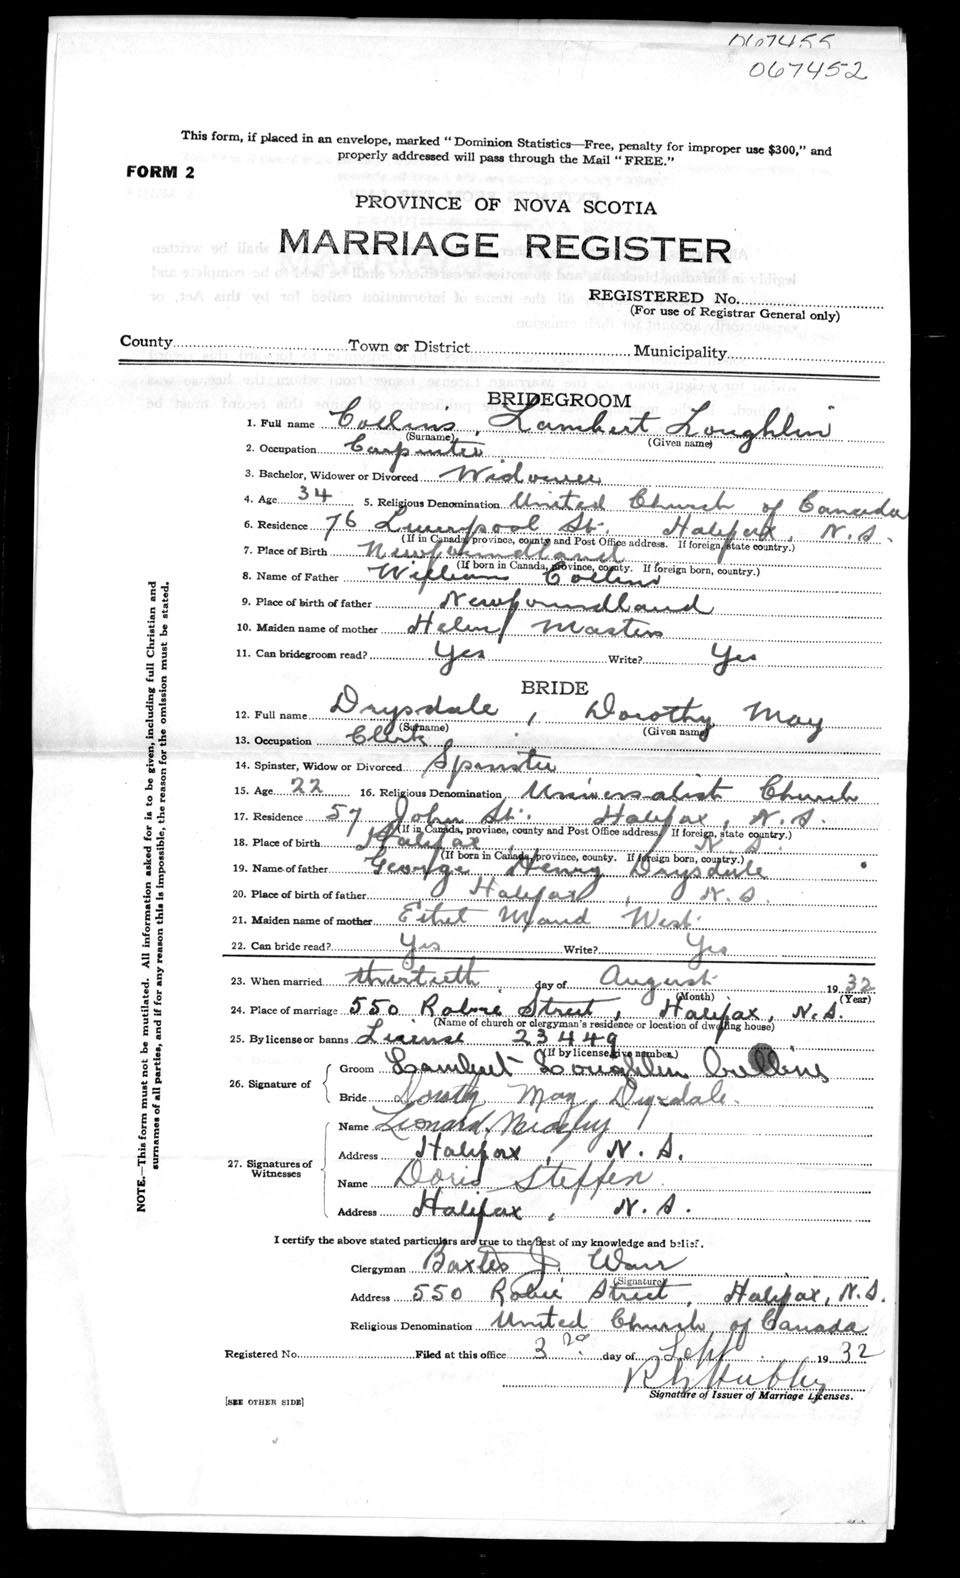 067455
067452
This form, if placed in an envelope, marked "Dominion Statistics—Free, penalty for improper use $300," and
properly addressed will pass through the Mail "FREE."
FORM 2
PROVINCE OF NOVA SCOTIA
MARRIAGE REGISTER
REGISTERED No.
(For use of Registrar General only)
County Town or District Municipality
BRIDEGROOM
1. Full name Collins, Lambert Loughlin
(Surname) (Given name)
2. Occupation Carpenter
3. Bachelor, Widower or Divorced Widower
4. Age 34 5. Religious Denomination United Church of Canada
6. Residence 76 Liverpool St., Halifax, N.S.
(If in Canada, province, county and Post Office address. If foreign, state country.)
7. Place of Birth Newfoundland
(If born in Canada, province, county. If foreign born, country.)
8. Name of Father William Collins
9. Place of birth of father Newfoundland
10. Maiden name of mother Helen Masters
11. Can bridegroom read? Yes Write? Yes
BRIDE
12. Full name Drysdale, Dorothy May
(Surname) (Given name)
13. Occupation Clerk
14. Spinster, Widow or Divorced Spinster
15. Age 22 16. Religious Denomination Universalist Church
17. Residence 57 John St. Halifax, N.S.
(If in Canada, province, county and Post Office address. If foreign, state country.)
18. Place of birth Halifax, N.S.
(If born in Canada, province, county. If foreign born, country.)
19. Name of father George Henry Drysdale
20. Place of birth of father Halifax, N.S.
21. Maiden name of mother Ethel Maud West
22. Can bride read? Yes Write? Yes
23. When married thirtieth day of August 1932
(Month) (Year)
24. Place of marriage 550 Robie Street, Halifax, N.S.
(Name of church or clergyman's residence or location of dwelling house)
25. By license or banns License 23449
(If by license, give number.)
26. Signature of Groom Lambert Loughlin Collins
Bride Dorothy May Drysdale.
27. Signatures of Witnesses Name Leonard
Address Halifax, N.S.
Name Doris Steffen
Address Halifax, N.S.
I certify the above stated particulars are true to the best of my knowledge and belief.
Clergyman Baxter J. Warr
(Signature)
Address 550 Robie Street, Halifax, N.S.
Religious Denomination United Church of Canada
Registered No. Filed at this office 3 day of Sept 1932
Hubley
Signature of Issuer of Marriage Licenses.
[SEE OTHER SIDE]
NOTE.—This form must not be mutilated. All information asked for is to be given, including full Christian and
surnames of all parties, and if for any reason this is impossible, the reason for the omission must be stated.